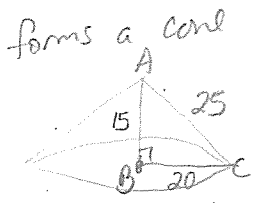 forms a cone
A
25
15
B
20
C